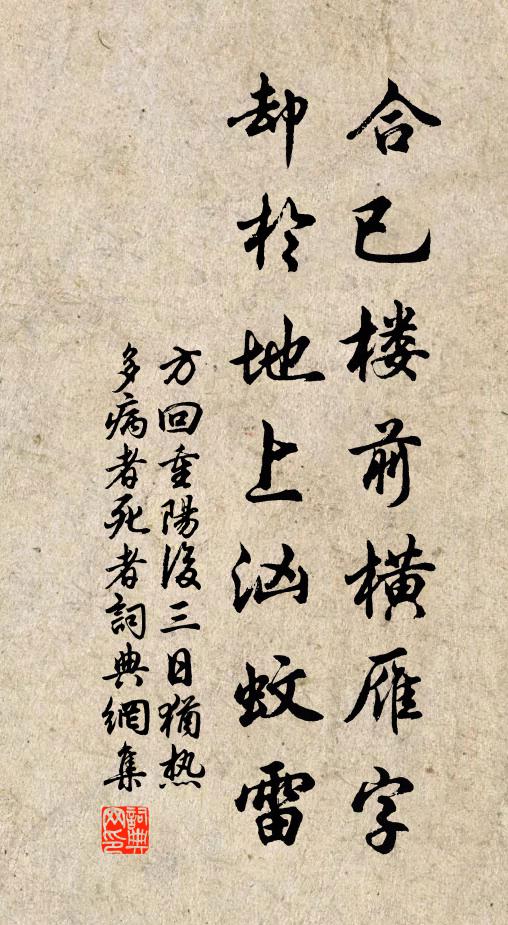 合已楼前横雁字
却於地上汹蚊雷
方回重陽後三日猶热
多病者死者詞典網集
詞典网印